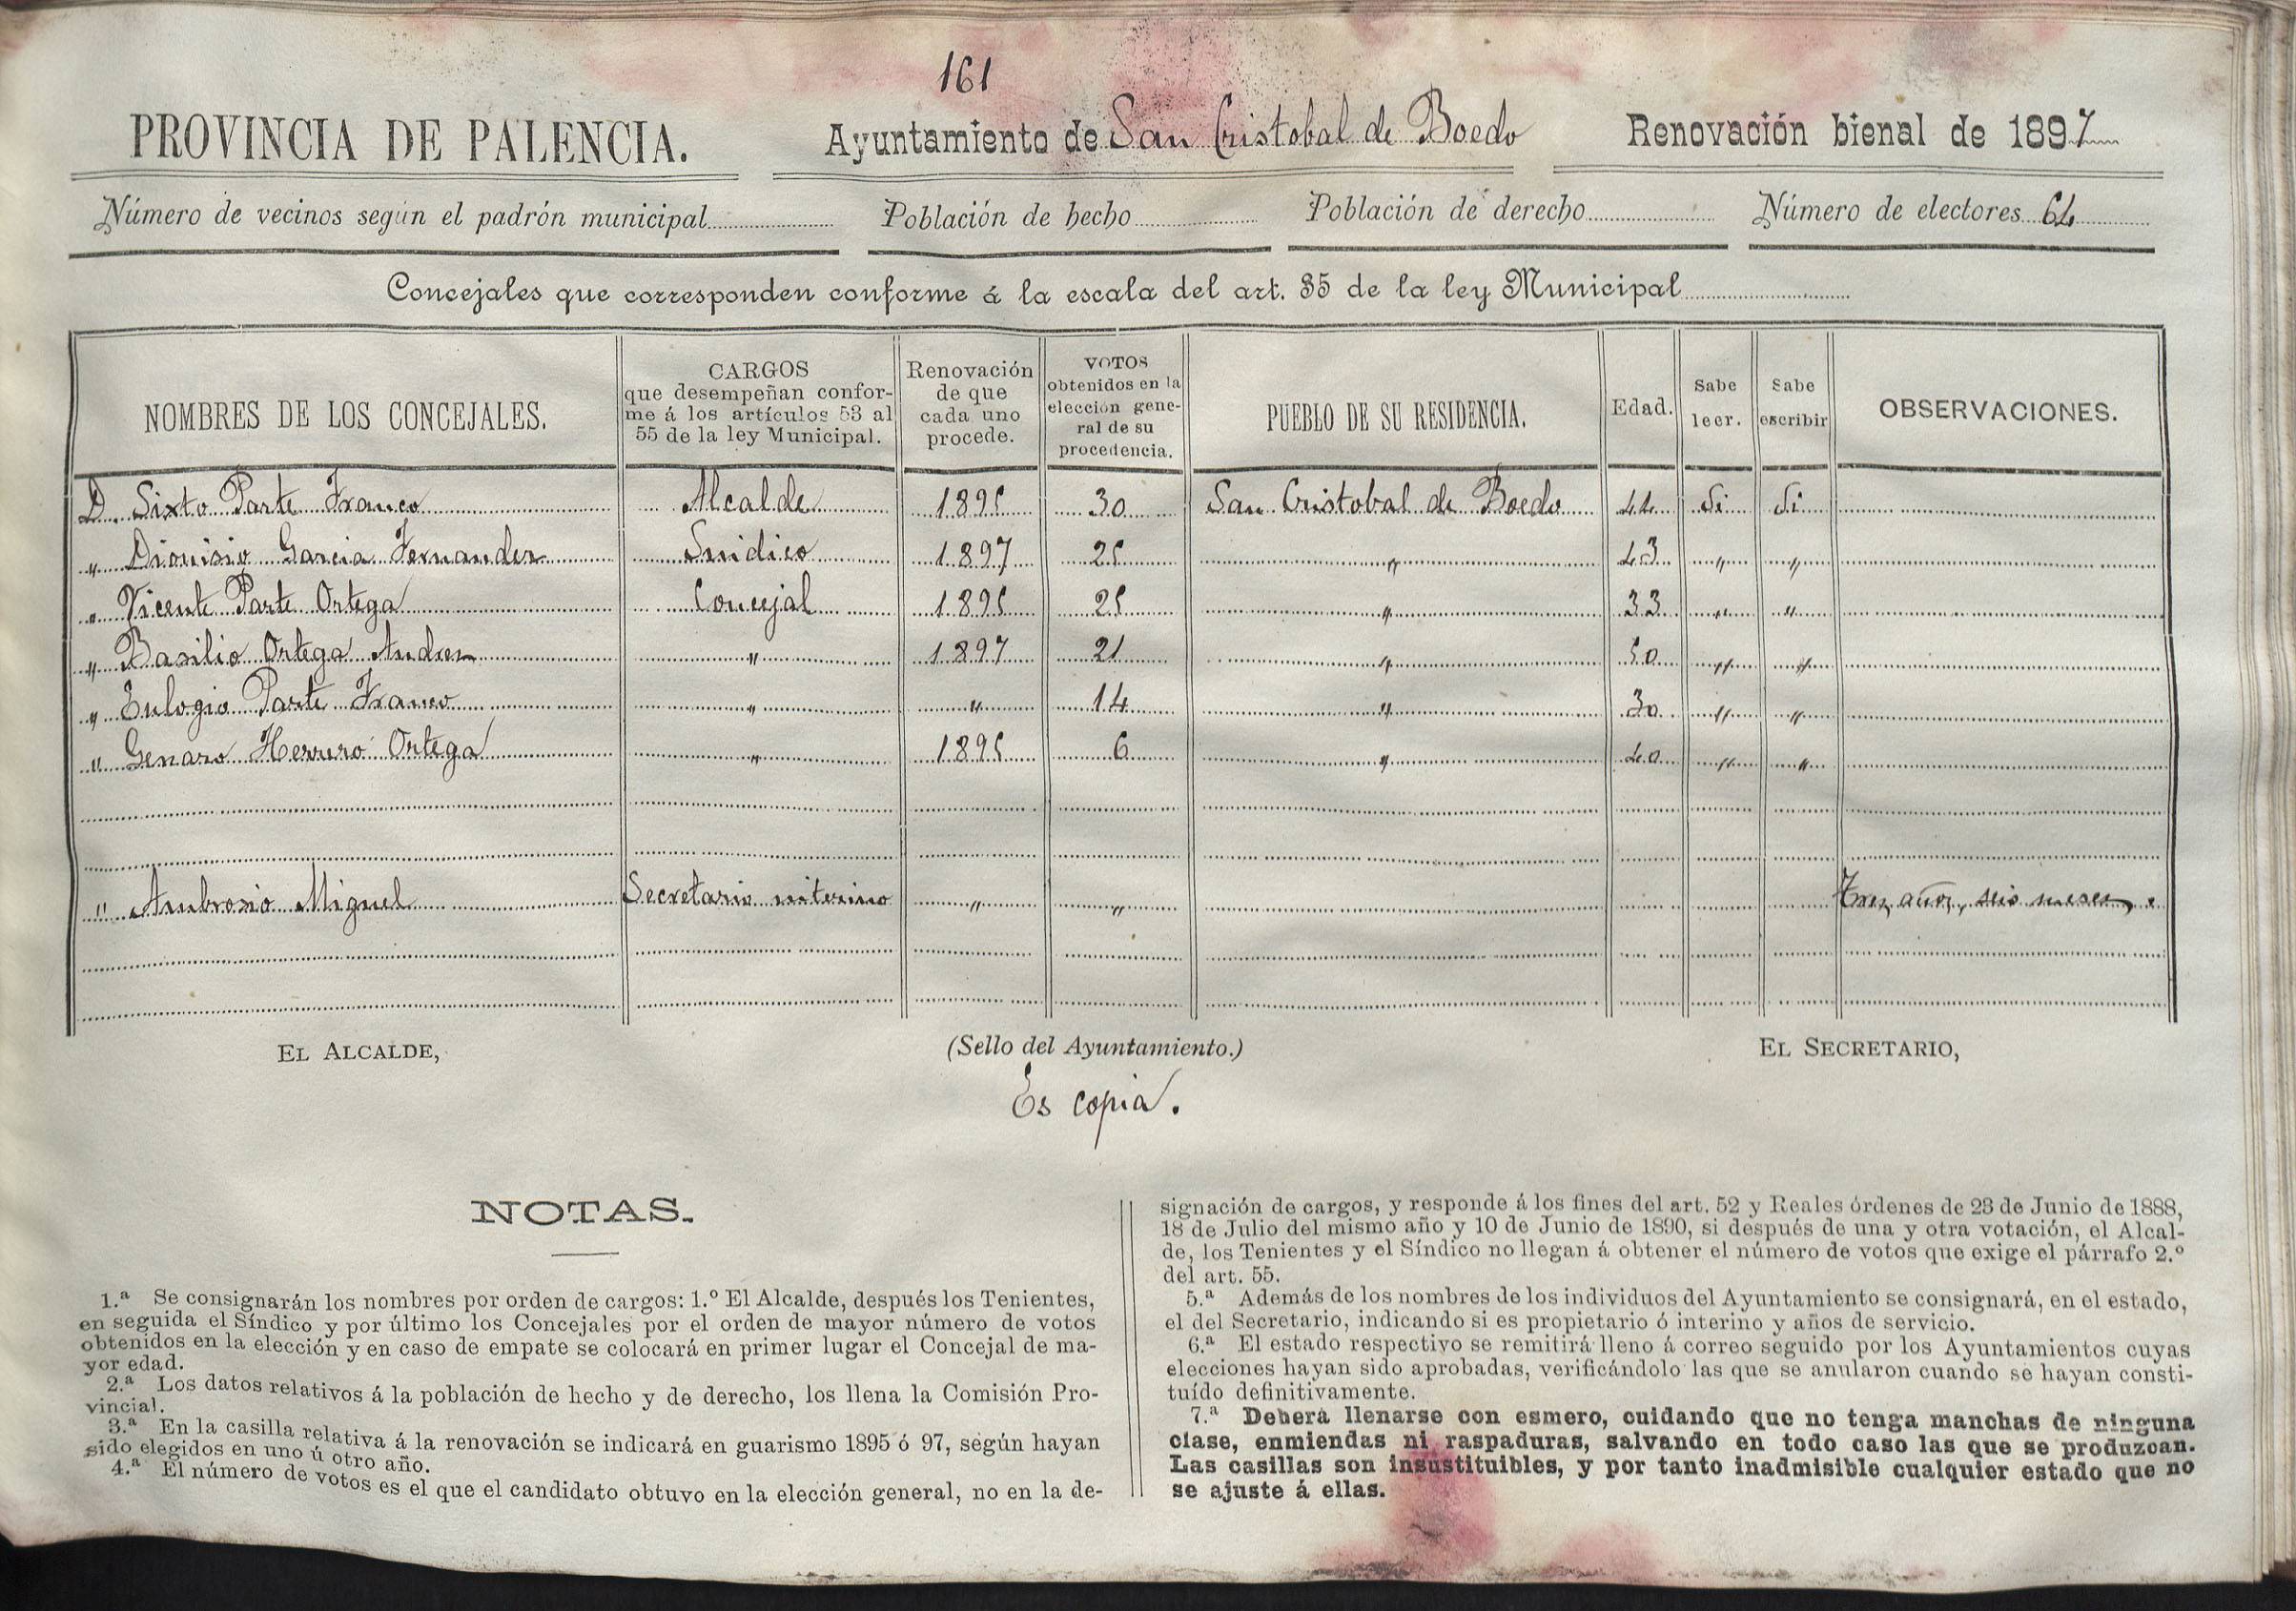 161
PROVINCIA DE PALENCIA. Ayuntamiento de San Cristobal de Boedo Renovación bienal de 1897
Número de vecinos según el padrón municipal Población de hecho Población de derecho Número de electores 64
Concejales que corresponden conforme á la escala del art. 35 de la ley Municipal
NOMBRES DE LOS CONCEJALES. CARGOS que desempeñan conforme á los artículos 53 al 55 de la ley Municipal. Renovación de que cada uno procede. VOTOS obtenidos en la elección general de su procedencia. PUEBLO DE SU RESIDENCIA. Edad. Sabe leer. Sabe escribir OBSERVACIONES.
D. Sixto Parte Franco Alcalde 1895 30 San Cristobal de Boedo 44 Si Si
" Dionisio Garcia Fernandez Sindico 1897 25 " 43 " "
" Vicente Parte Ortega Concejal 1895 25 " 33 " "
" Basilio Ortega Andres " 1897 21 " 50 " "
" Eulogio Parte Franco " " 14 " 30 " "
" Genaro Herrero Ortega " 1895 6 " 40 " "
" Ambrosio Miguel Secretario interino " " Tres años, seis meses
EL ALCALDE, (Sello del Ayuntamiento.) EL SECRETARIO,
Es copia.
NOTAS.
1.ª Se consignarán los nombres por orden de cargos: 1.º El Alcalde, después los Tenientes,
en seguida el Síndico y por último los Concejales por el orden de mayor número de votos
obtenidos en la elección y en caso de empate se colocará en primer lugar el Concejal de ma-
yor edad.
2.ª Los datos relativos á la población de hecho y de derecho, los llena la Comisión Pro-
vincial.
3.ª En la casilla relativa á la renovación se indicará en guarismo 1895 ó 97, según hayan
sido elegidos en uno ú otro año.
4.ª El número de votos es el que el candidato obtuvo en la elección general, no en la de-
signación de cargos, y responde á los fines del art. 52 y Reales órdenes de 23 de Junio de 1888,
18 de Julio del mismo año y 10 de Junio de 1890, si después de una y otra votación, el Alcal-
de, los Tenientes y el Síndico no llegan á obtener el número de votos que exige el párrafo 2.º
del art. 55.
5.ª Además de los nombres de los individuos del Ayuntamiento se consignará, en el estado,
el del Secretario, indicando si es propietario ó interino y años de servicio.
6.ª El estado respectivo se remitirá lleno á correo seguido por los Ayuntamientos cuyas
elecciones hayan sido aprobadas, verificándolo las que se anularon cuando se hayan consti-
tuído definitivamente.
7.ª Deberá llenarse con esmero, cuidando que no tenga manchas de ninguna
clase, enmiendas ni raspaduras, salvando en todo caso las que se produzcan.
Las casillas son insustituibles, y por tanto inadmisible cualquier estado que no
se ajuste á ellas.